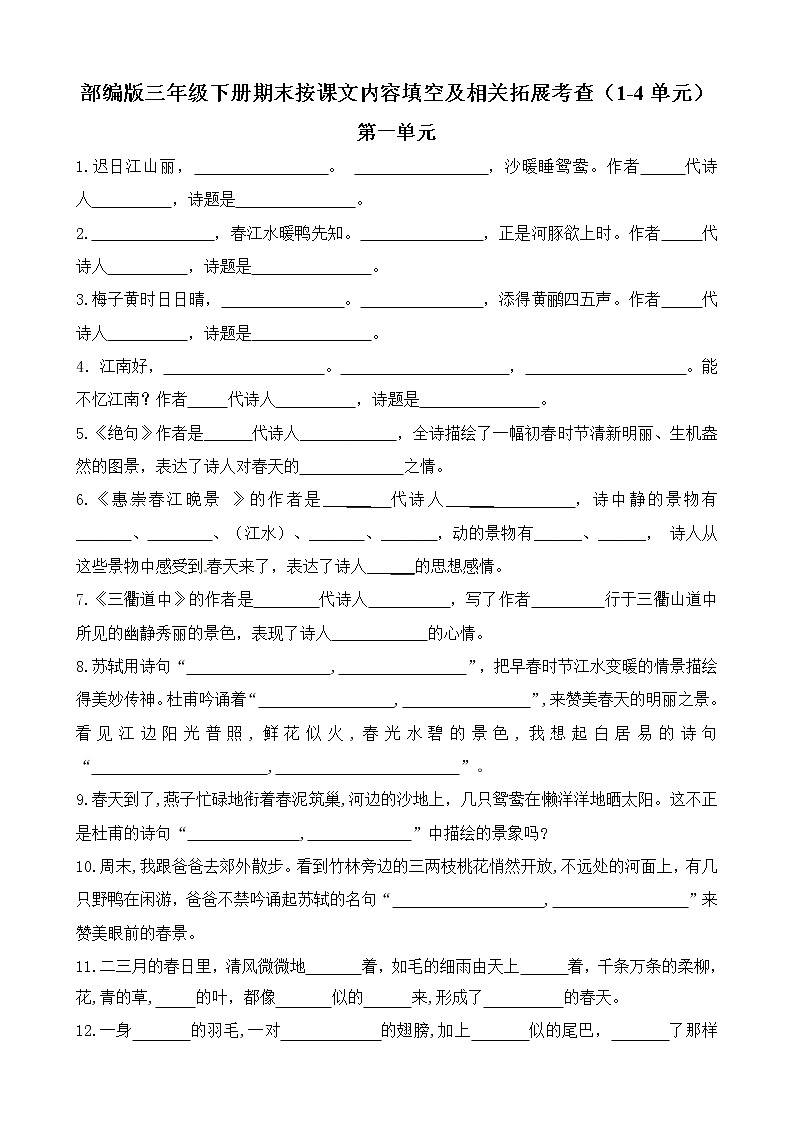 部编版三年级下册期末按课文内容填空及相关拓展考查（1-4 单元）
第一单元
1.迟日江山丽，________________。 ________________，沙暖睡鸳鸯。作者_____代诗
人__________，诗题是______________。
2._______________，春江水暖鸭先知。_______________，正是河豚欲上时。作者_____代
诗人__________，诗题是______________。
3.梅子黄时日日晴，_______________。_______________，添得黄鹂四五声。作者_____代
诗人__________，诗题是______________。
4. 江南好，____________________。____________________，____________________。能
不忆江南？作者_____代诗人__________，诗题是______________。
5.《绝句》作者是______代诗人____________，全诗描绘了一幅初春时节清新明丽、生机盎
然的图景，表达了诗人对春天的_____________之情。
6.《惠崇春江晚景 》的作者是________代诗人________________，诗中静的景物有
_______、________、（江水）、_______、_______，动的景物有______、______， 诗人从
这些景物中感受到春天来了，表达了诗人______的思想感情。
7.《三衢道中》的作者是________代诗人__________，写了作者_________行于三衢山道中
所见的幽静秀丽的景色，表现了诗人____________的心情。
8.苏轼用诗句“__________________,________________”，把早春时节江水变暖的情景描绘
得美妙传神。杜甫吟诵着“_________________,________________”,来赞美春天的明丽之景。
看见江边阳光普照,鲜花似火,春光水碧的景色,我想起白居易的诗句
“______________________,_______________________”。
9.春天到了,燕子忙碌地衔着春泥筑巢,河边的沙地上，几只鸳鸯在懒洋洋地晒太阳。这不正
是杜甫的诗句“______________,_____________”中描绘的景象吗?
10.周末,我跟爸爸去郊外散步。看到竹林旁边的三两枝桃花悄然开放,不远处的河面上，有几
只野鸭在闲游，爸爸不禁吟诵起苏轼的名句“___________________,_________________”来
赞美眼前的春景。
11.二三月的春日里，清风微微地_______着，如毛的细雨由天上______着，千条万条的柔柳，
花,青的草,_____的叶，都像_______似的______来,形成了__________的春天。
12.一身_______的羽毛,一对____________的翅膀,加上_______似的尾巴，_______了那样